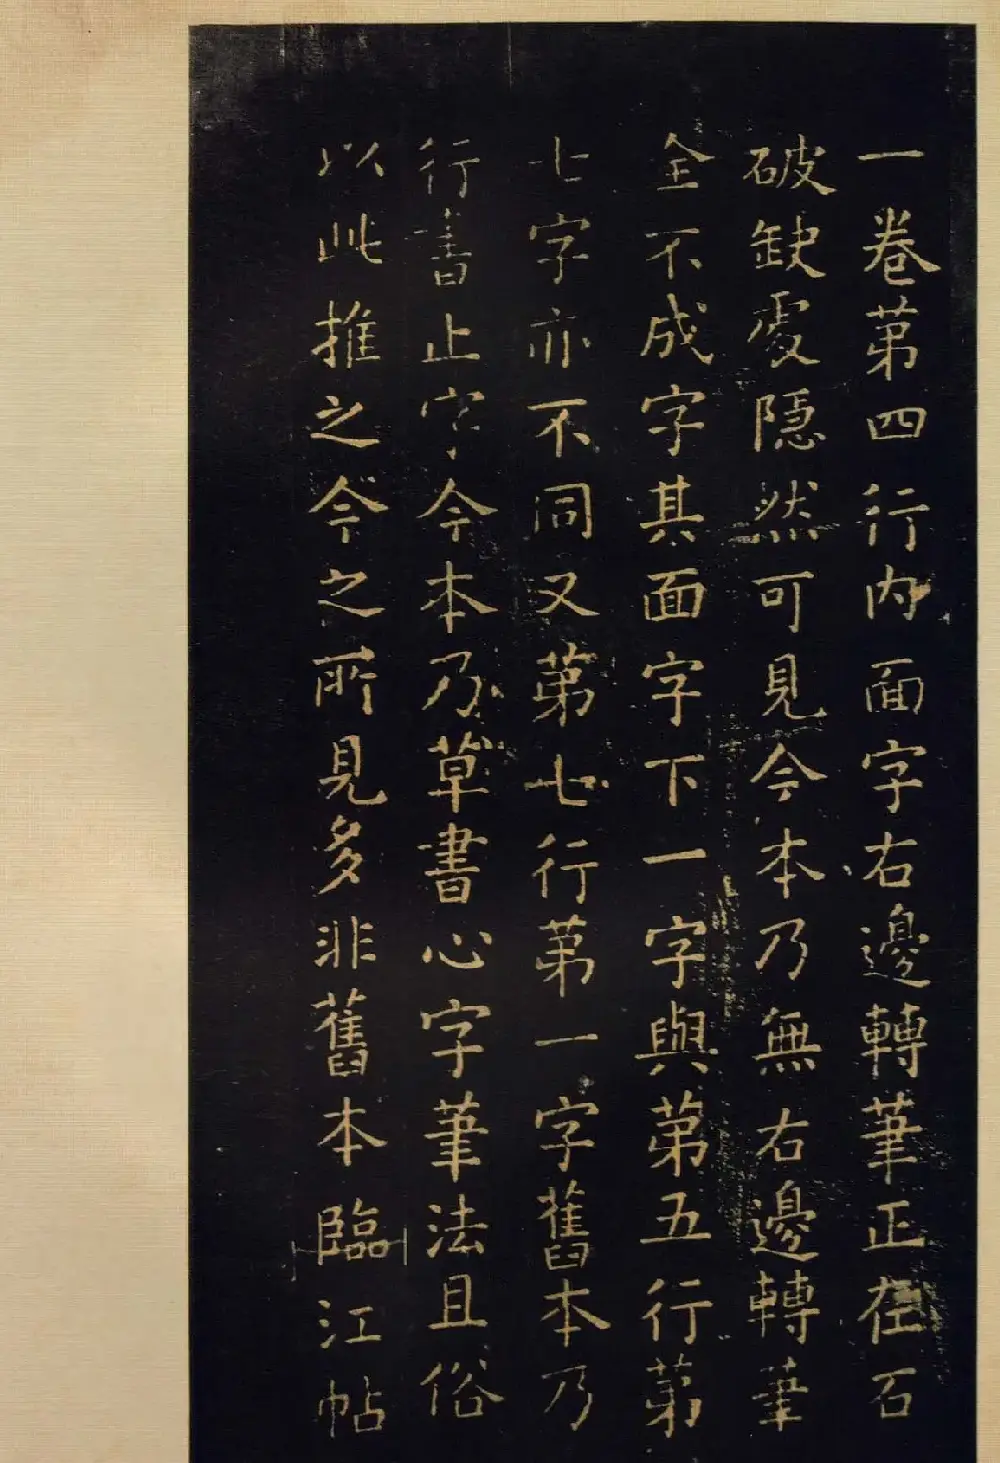 一卷第四行内面字右邊轉筆正在石
破缺處隱然可見今本乃無右邊轉筆
全不成字其面字下一字與第五行第
七字亦不同又第七行第一字舊本乃
行書止字今本乃草書心字筆法且俗
以此推之今之所見多非舊本臨江帖